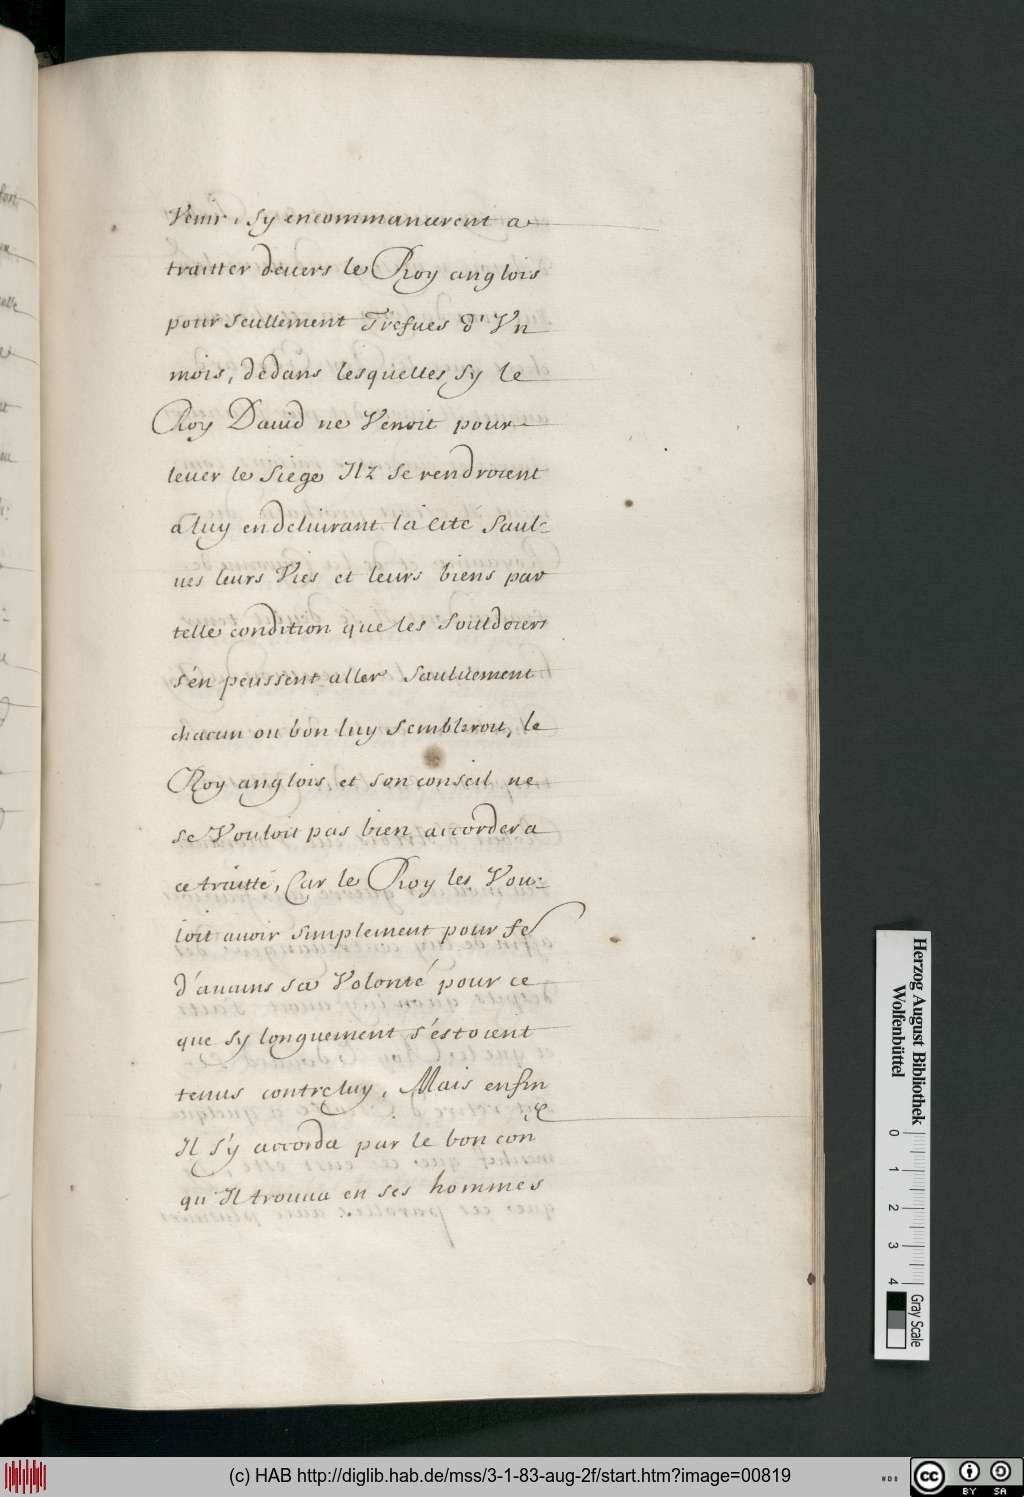 Venir, sy encommancerent a
traitter deuers le Roy anglois
pour seullement Trefues d'Vn
mois, dedans lesquelles sy le
Roy Dauid ne Venoit pour
leuer le siege Ilz se rendroient
a luy en deliurant la cité saul-
ues leurs Vies et leurs biens par
telle condition que les souldoiers
s'en peussent aller sauluement
chacun ou bon luy sembleroit, le
Roy anglois, et son conseil ne
se Vouloit pas bien accorder a
ce traitté, Car le Roy les Vou-
loit auoir simplement pour
sa Volonté pour ce
que sy longuement s'estoient
tenus contre luy, Mais enfin
Il s'y accorda par le bon con
qu'Il trouua en ses hommes
Herzog August Bibliothek
Wolfenbüttel
0 1 2 3 4
Gray Scale
(c) HAB http://diglib.hab.de/mss/3-1-83-aug-2f/start.htm?image=00819
WDB
cc BY SA